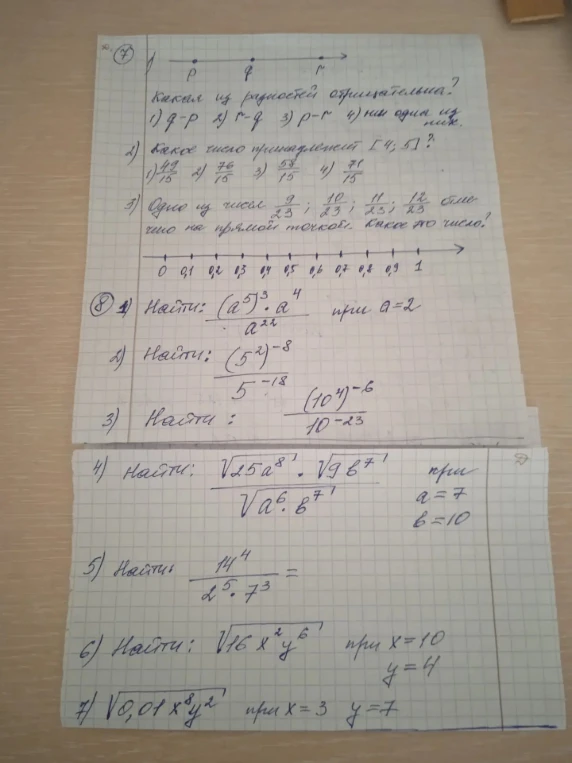 ⑦ 1)
p q r
Какая из разностей отрицательна?
1) q-p 2) r-q 3) p-r 4) ни одна из
них.
2) Какое число принадлежит [4; 5]?
1) 49/15 2) 76/15 3) 58/15 4) 71/15
3) Одно из чисел 9/23; 10/23; 11/23; 12/23 отме-
чено на прямой точкой. Какое это число?
0 0,1 0,2 0,3 0,4 0,5 0,6 0,7 0,8 0,9 1
⑧ 1) Найти: (a⁵)³·a⁴/a²² при a=2
2) Найти: (5²)⁻⁸/5⁻¹⁸
3) Найти: (10⁴)⁻⁶/10⁻²³
4) Найти: √25a⁸ · √9b⁷/√a⁶·b⁷ при
a=7
b=10
5) Найти: 14⁴/2⁵·7³ =
6) Найти: √16x²y⁶ при x=10
y=4
7) √0,01x⁸y² при x=3 y=7